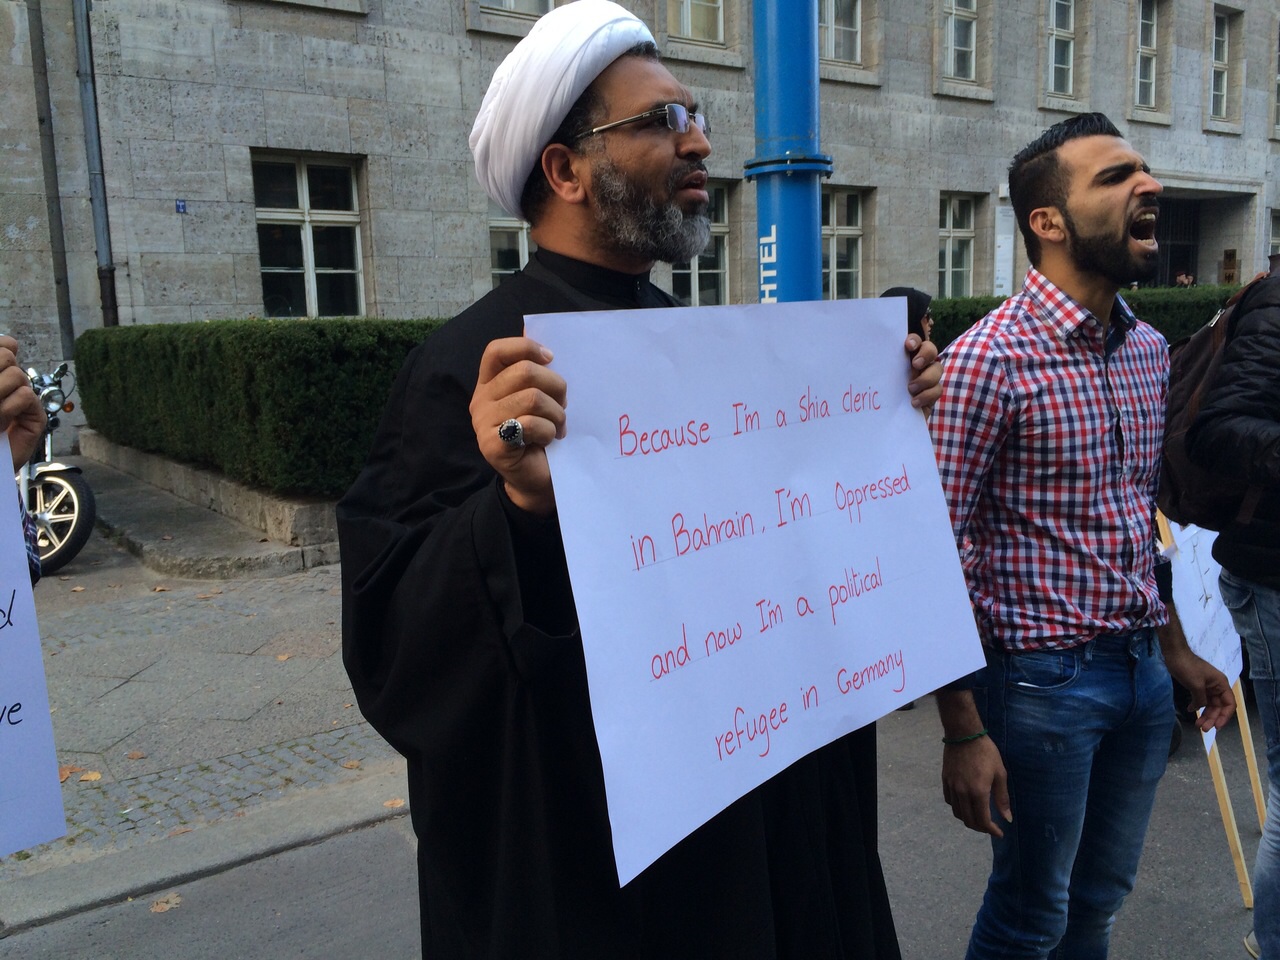 HTEL
Because I'm a shia cleric
in Bahrain, I'm Oppressed
and now I'm a political
refugee in Germany
d
ve